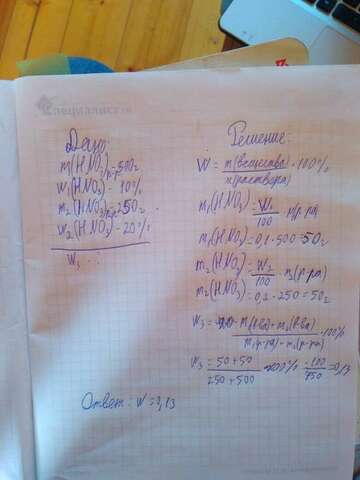 Специалист.ru
Дано:
m₁(HNO₃)р-р-500г
W₁(HNO₃)-10%
m₂(HNO₃)р-р-250г
W₂(HNO₃)-20%
W₃
Решение:
W = m(вещества)/m(раствора) · 100%
m₁(HNO₃) = W₁/100 · m(р-ра)
m₁(HNO₃) = 0,1·500=50г
m₂(HNO₃) = W₂/100 · m₂(р-ра)
m₂(HNO₃) = 0,2·250=50г
W₃ = m₁(в-ва)+m₂(в-ва)/m₁(р-ра)+m₂(р-ра) · 100%
W₃ = 50+50/250+500 ·100% = 100/750 =0,13
Ответ: W=0,13